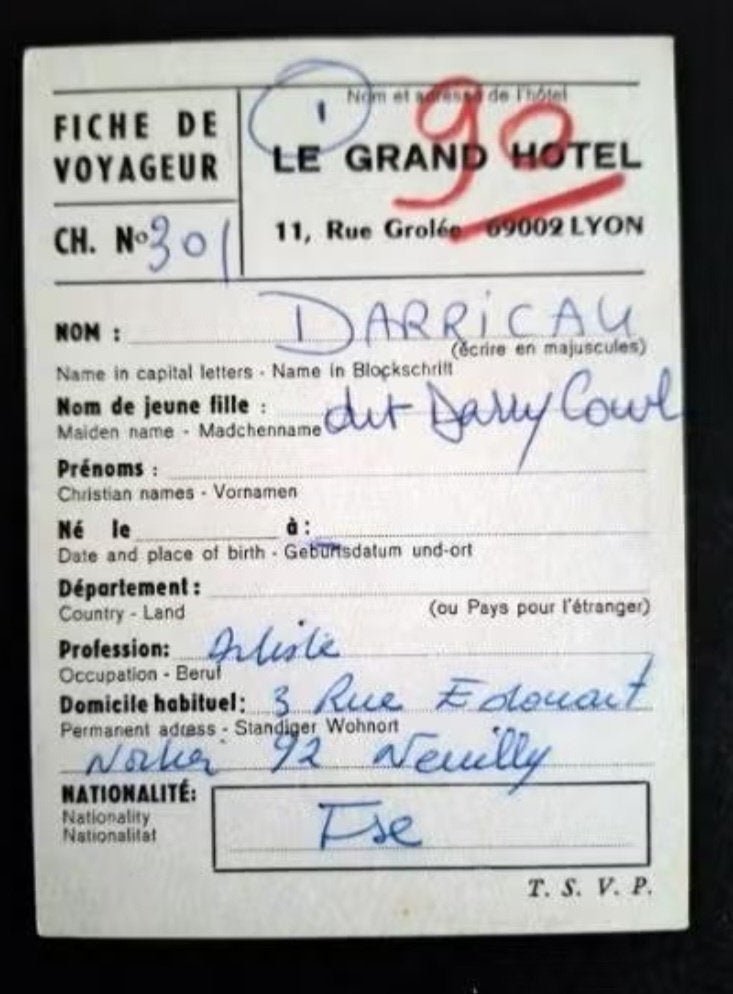 1
90
Nom et adresse de l'hôtel
FICHE DE
VOYAGEUR
LE GRAND HOTEL
CH. Nº 301
11, Rue Grolée 69002 LYON
NOM : DARRICAU
(écrire en majuscules)
Name in capital letters - Name in Blockschrift
Nom de jeune fille : dit Darry Cowl
Maiden name - Madchenname
Prénoms :
Christian names - Vornamen
Né le à :
Date and place of birth - Geburtsdatum und-ort
Département :
Country - Land (ou Pays pour l'étranger)
Profession: Artiste
Occupation - Beruf
Domicile habituel: 3 Rue Edouart
Permanent adress - Standiger Wohnort
92 Neuilly
NATIONALITÉ:
Nationality
Nationalitat
Fse
T. S. V. P.